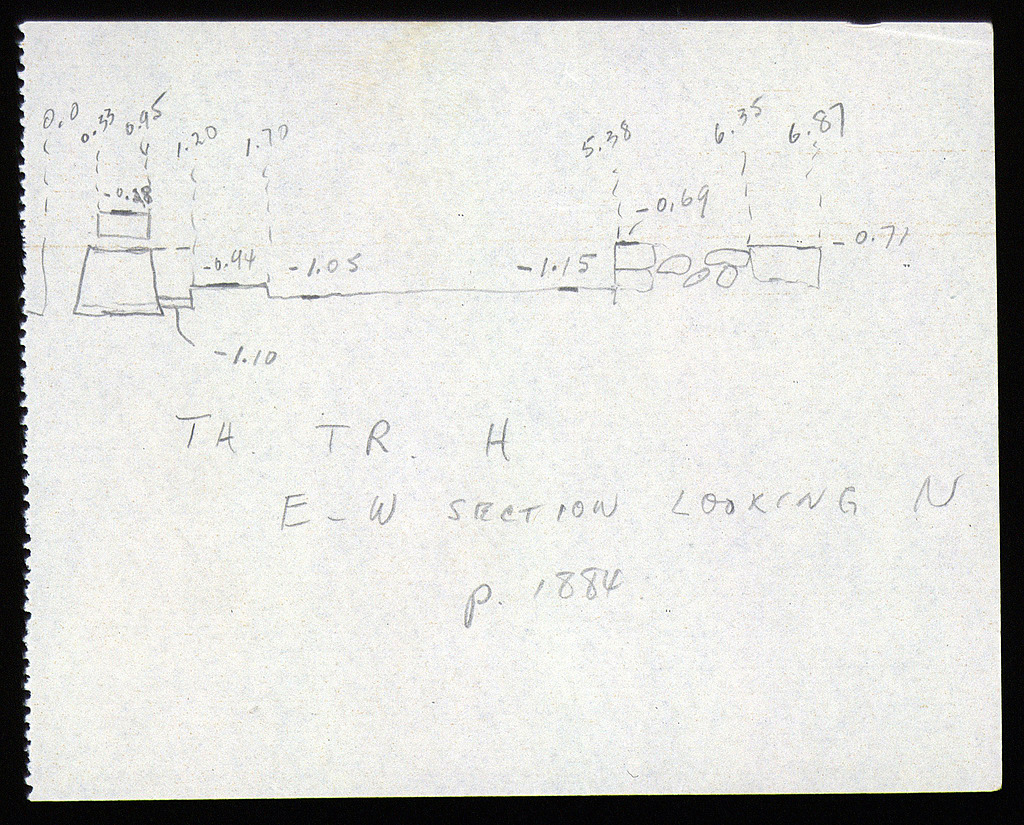 0.0 0.33 0.95 1.20 1.70 5.38 6.35 6.87
-0.69
-0.71
-0.94 -1.05 -1.15
-1.10
TH. TR. H
E-W SECTION LOOKING N
p. 1884